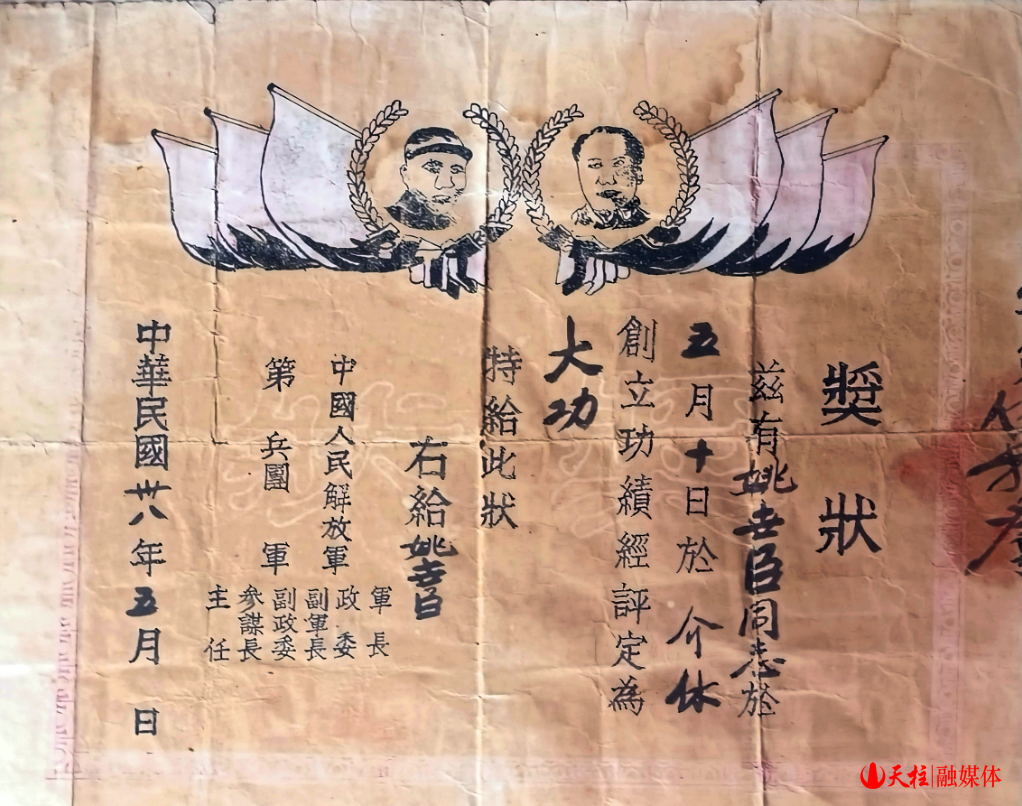 獎狀
茲有姚世臣同志於
五月十日於介休
創立功績經評定為
大功
特給此狀
右給姚世臣
中國人民解放軍
第 兵團 軍
軍長
政委
副軍長
副政委
參謀長
主任
中華民國卅八年五月 日
天柱|融媒体